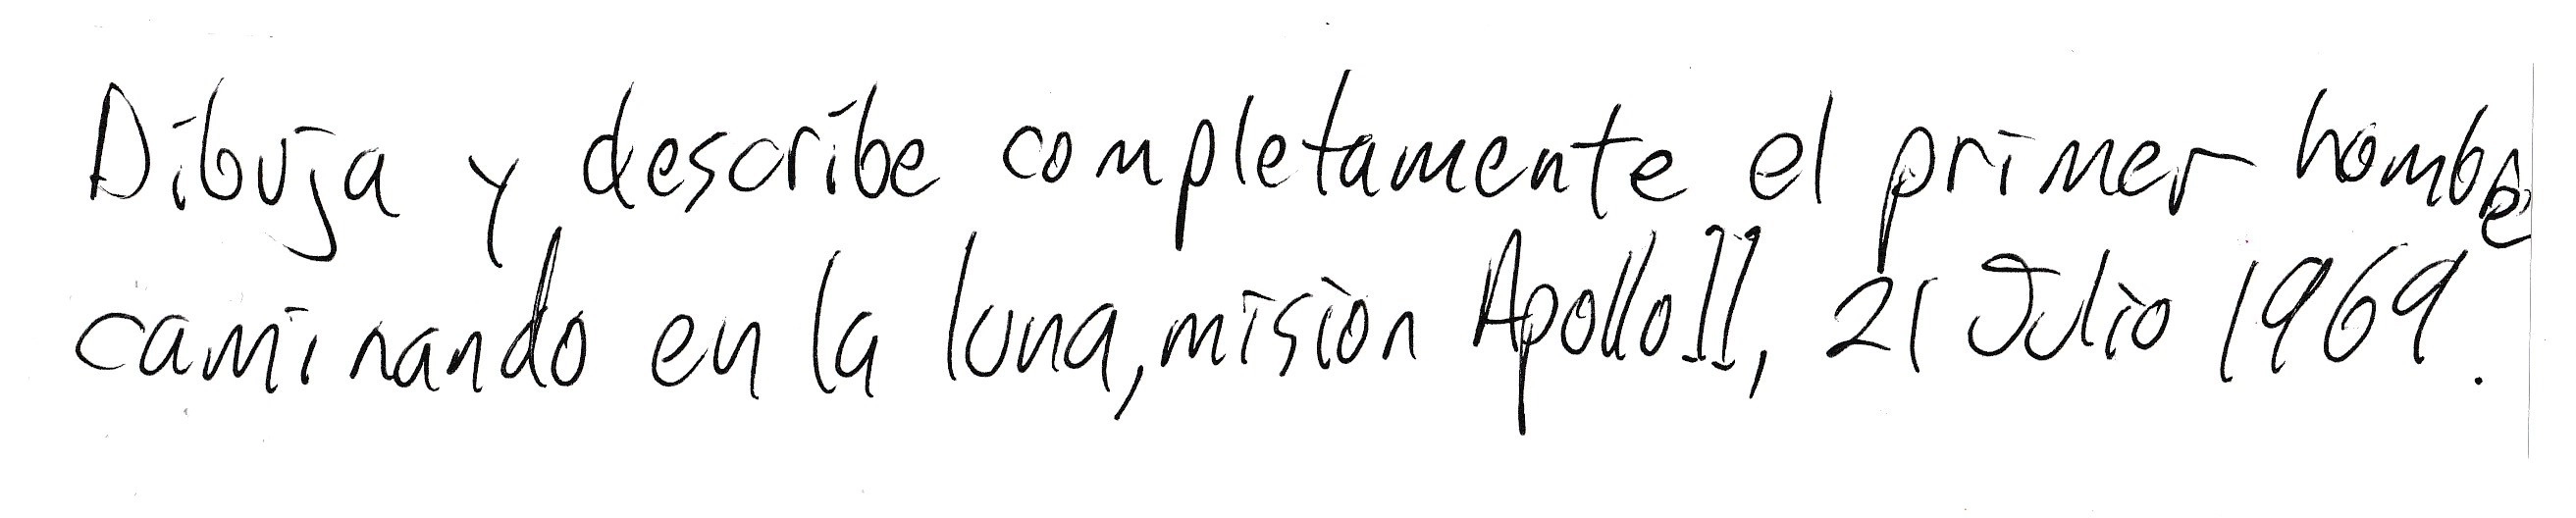 Dibuja y describe completamente el primer hombre
caminando en la luna, mision Apollo 11, 21 Julio 1969.